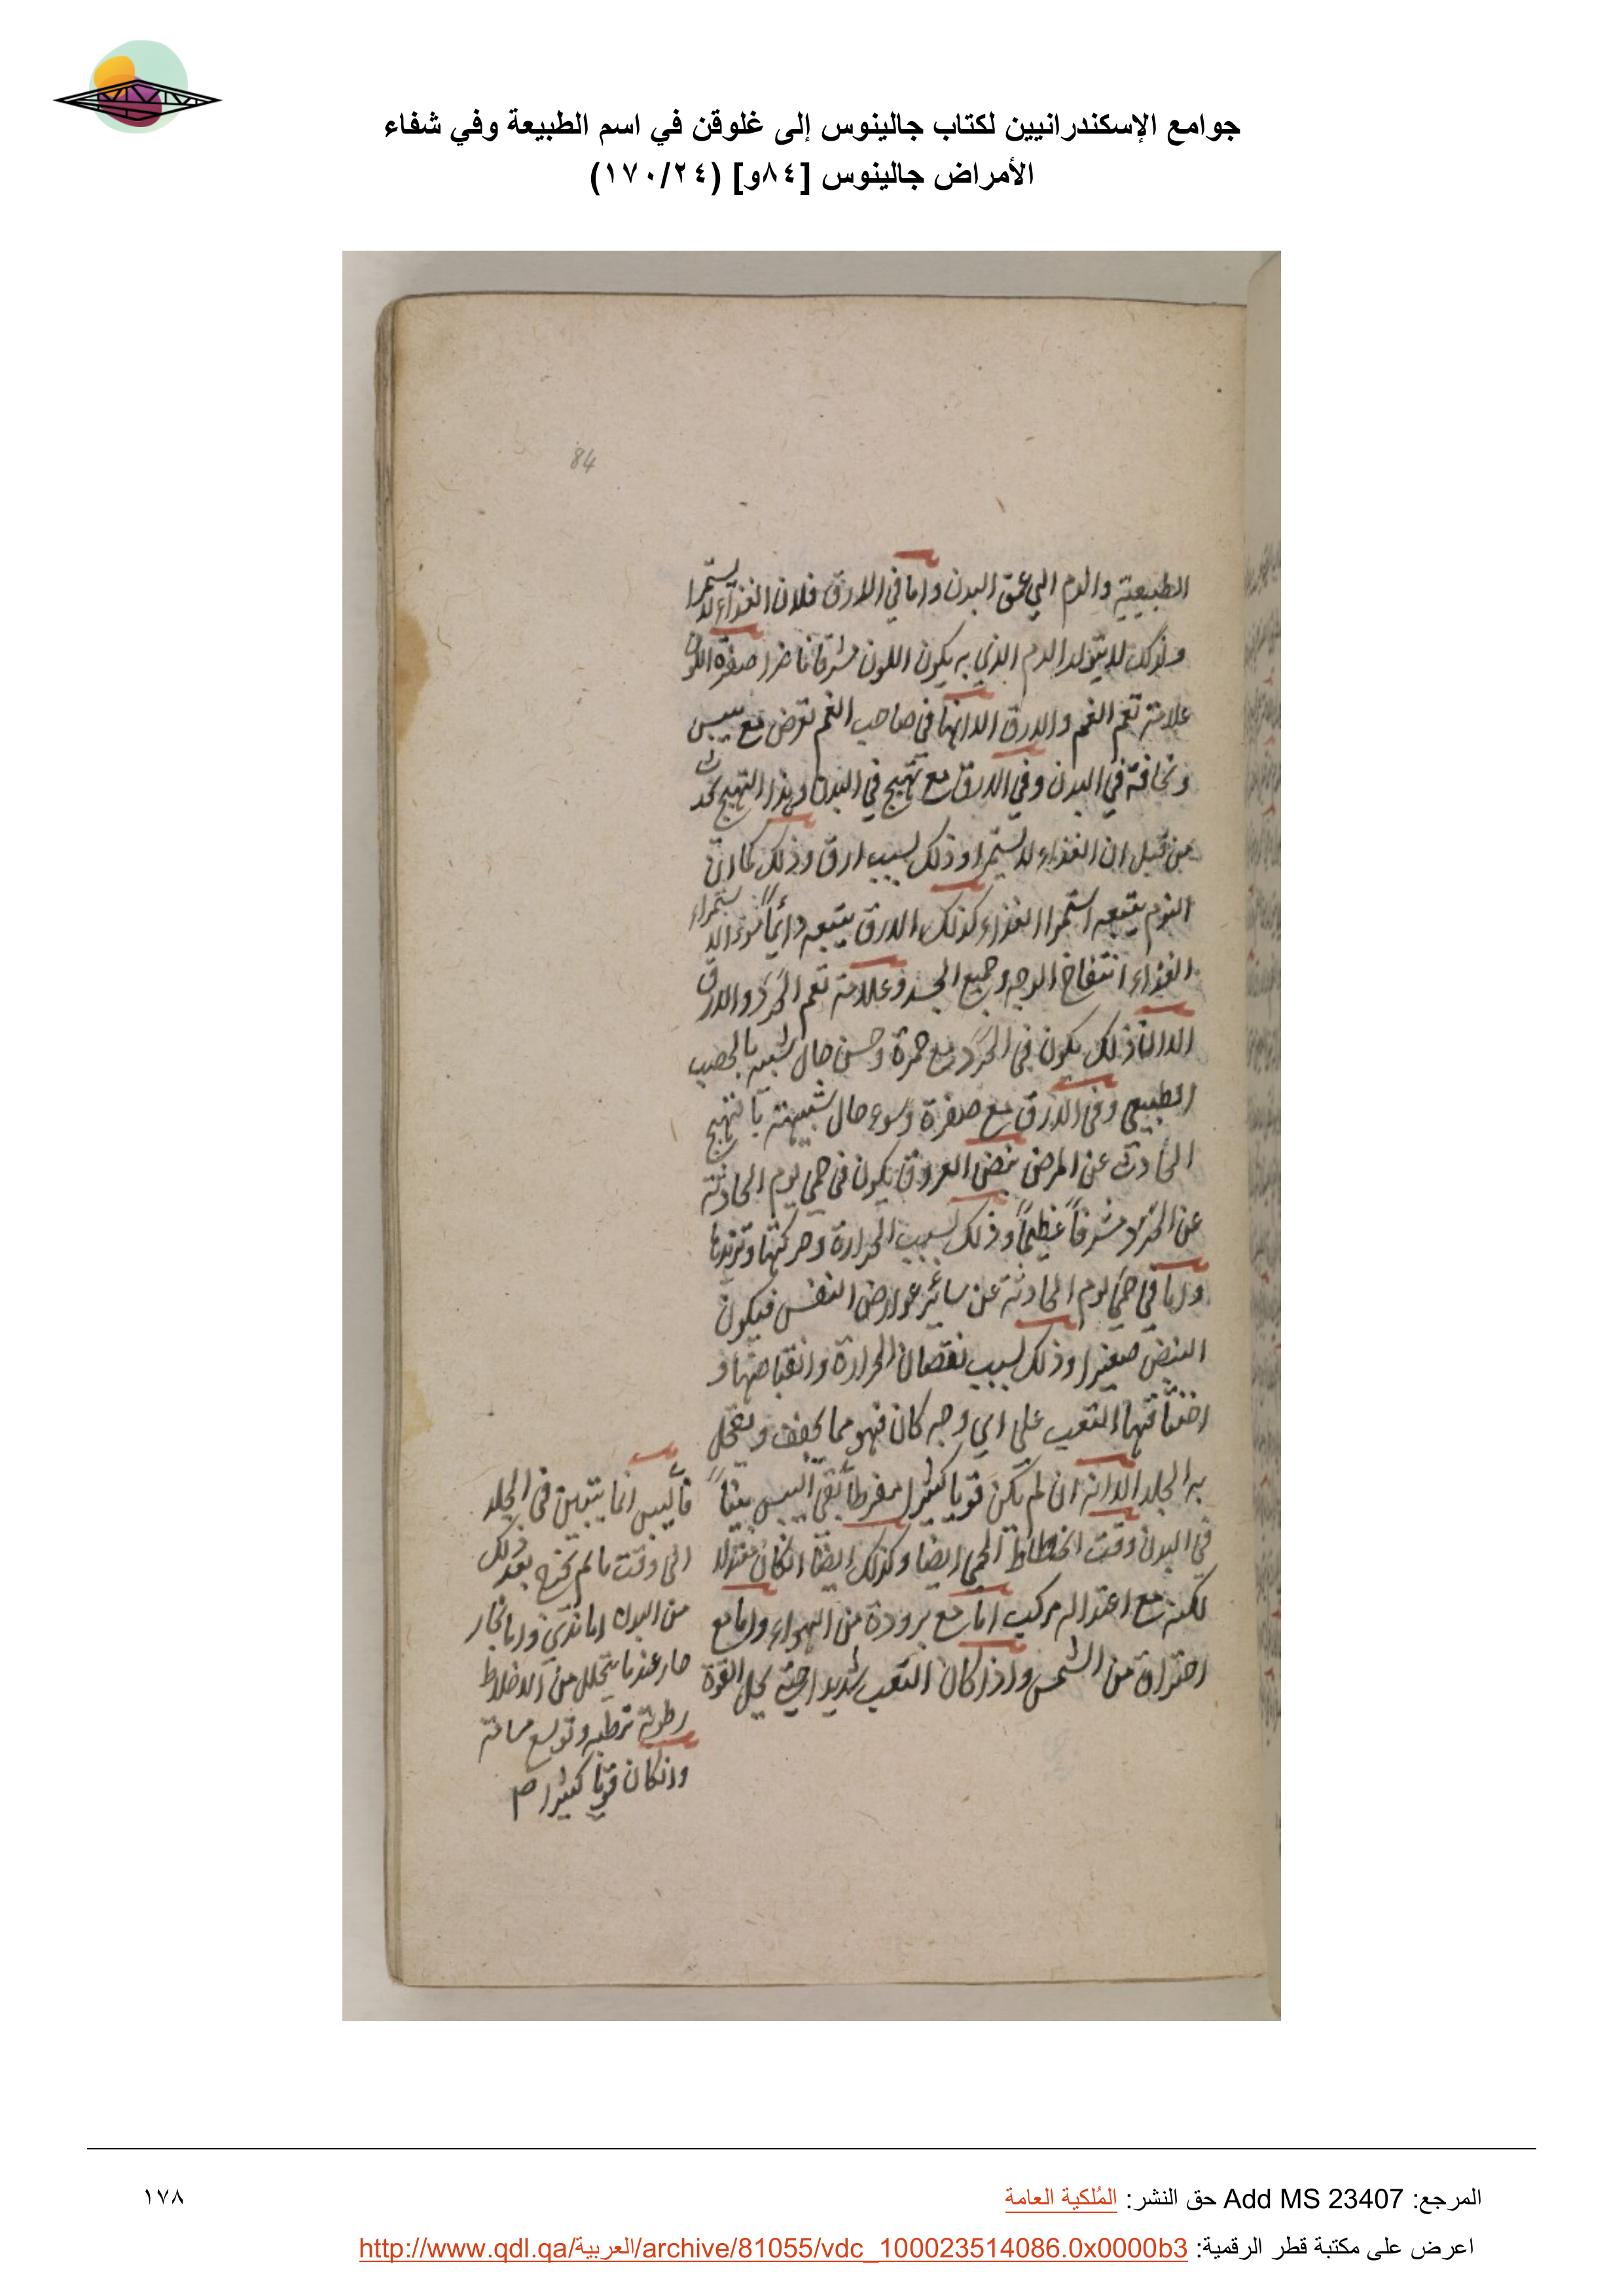 جوامع الإسكندرانيين لكتاب جالينوس إلى غلوقن في اسم الطبيعة وفي شفاء
الأمراض جالينوس [٨٤و] (١٧٠/٢٤)
84
الطبيعية والدم الي عمق البدن واما في الارق فلان الغذاء لا يستمرا
ولذلك لا يتولد الدم الذي به يكون اللون مشرقا ناضرا صفرة اللون
علامة تعم الغم والارق الا انها في صاحب الغم تعرض مع يبس
ونحافة في البدن وفي الارق مع تهيج في البدن وهذا التهيج يحدث
من قبل ان الغذاء لا يستمرا وذلك لسبب ارق وذلك كما ان
النوم يتبعه استمرا الغذاء كذلك الارق يتبعه دائماً سوء الاستمراء
الغذاء انتفاخ الوجه وجميع الجسد وعلامة تعم الحرد والارق
الا ان ذلك يكون في الحرد مع حمرة وحسن حال شبيه بالخصب
الطبيعي وفي الارق مع صفرة وسوء حال شبيهة بالتهيج
الحادث عن المرض نبض العروق يكون في حمى يوم الحادثة
عن الحرد مشرفاً عظيماً وذلك لسبب الحرارة وحركتها وتزيدها
واما في حمى يوم الحادثة عن سائر عوارض النفس فيكون
النبض صغيرا وذلك لسبب نقصان الحرارة وانقباضها و
اختناقها التعب على اي وجه كان فهو مما يجفف ويقحل
به الجلد الا انه ان لم يكن قويا كثيرا مفرطا بقي اليبس بيناً
في البدن وقت انحطاط الحمى ايضا وكذلك ايضا ان كان معتدلا
لكنه مع اعتداله مركب اما مع برودة من الهواء واما مع
احتراق من الشمس واذا كان التعب شديدا حتى يحل القوة
فاليبس انما يتبين في الجلد
الى وقت ما لم يخرج بعد ذلك
من البدن اما ندي واما بخار
صار عندما يتحلل من الاخلاط
رطوبة ترطبه وتوسع مسامه
وان كان قويا كثيرا
المرجع: Add MS 23407 حق النشر: المُلكية العامة
١٧٨
اعرض على مكتبة قطر الرقمية: http://www.qdl.qa/العربية/archive/81055/vdc_100023514086.0x0000b3